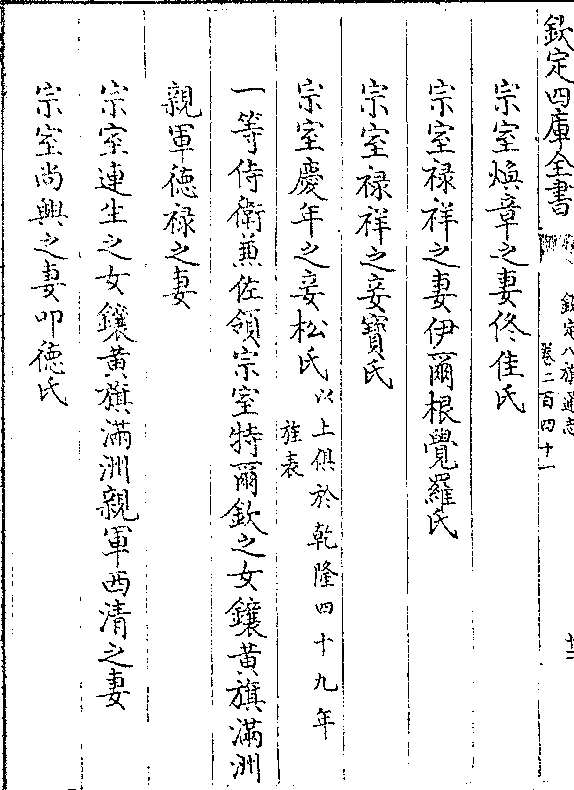 欽定四庫全書
欽定八旗通志
卷二百四十一
宗室煥章之妻佟佳氏
宗室祿祥之妻伊爾根覺羅氏
宗室祿祥之妾寶氏
宗室慶年之妾松氏以上俱於乾隆四十九年
旌表
一等侍衛兼佐領宗室特爾欽之女鑲黃旗滿洲
親軍德祿之妻
宗室連生之女鑲黃旗滿洲親軍西清之妻
宗室尚興之妻叩德氏